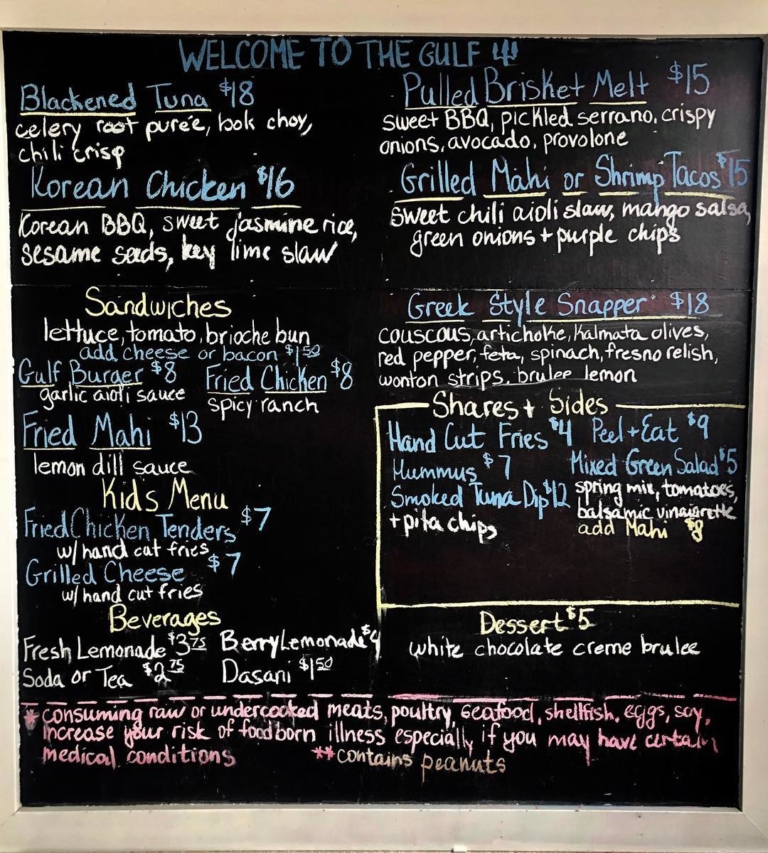 WELCOME TO THE GULF
Blackened Tuna $18
celery root pureé, bok choy,
chili crisp
Korean Chicken $16
Korean BBQ, sweet jasmine rice,
sesame seeds, key lime slaw
Pulled Brisket Melt $15
sweet BBQ, pickled serrano, crispy
onions, avocado, provolone
Grilled Mahi or Shrimp Tacos $15
sweet chili aioli slaw, mango salsa,
green onions + purple chips
Sandwiches
lettuce, tomato, brioche bun
add cheese or bacon $1.50
Gulf Burger $8
garlic aioli sauce
Fried Chicken $8
spicy ranch
Fried Mahi $13
lemon dill sauce
Kids Menu
Fried Chicken Tenders $7
w/ hand cut fries
Grilled Cheese $7
w/ hand cut fries
Beverages
Fresh Lemonade $3.75 Berry Lemonade $4
Soda or Tea $2.75 Dasani $1.50
Greek Style Snapper $18
couscous, artichoke, Kalmata olives,
red pepper, feta, spinach, fresno relish,
wonton strips, brulee lemon
Shares + Sides
Hand Cut Fries $4
Hummus $7
Smoked Tuna Dip $12
+ pita chips
Peel + Eat $9
Mixed Green Salad $5
spring mix, tomatoes,
balsamic vinaigrette
add Mahi $8
Dessert $5
white chocolate creme brulee
* consuming raw or undercooked meats, poultry, seafood, shellfish, eggs, soy,
increase your risk of foodborn illness especially if you may have certain
medical conditions **contains peanuts